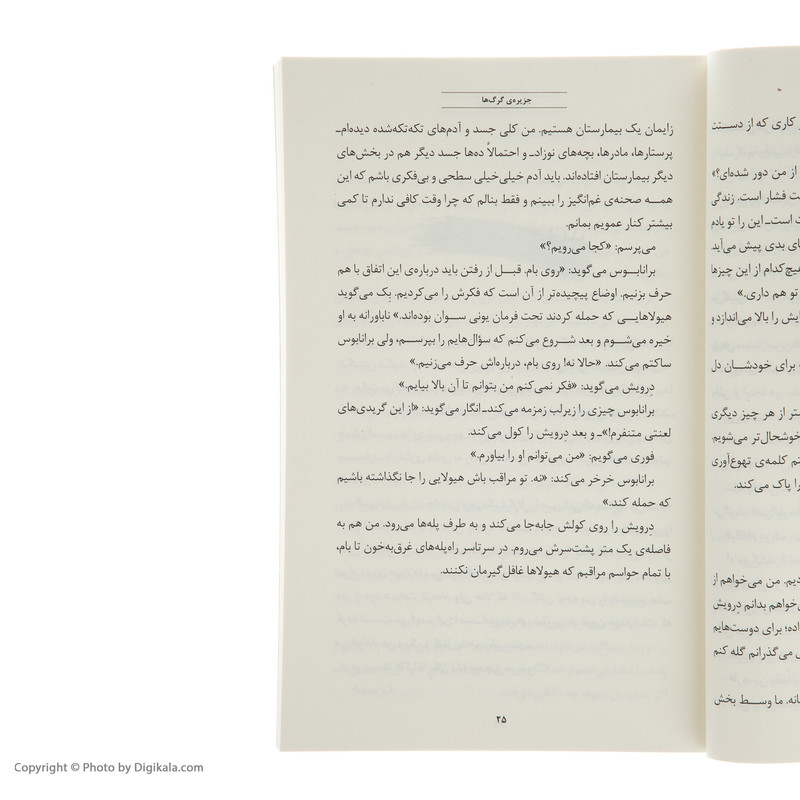 جزیره‌ی گرگ‌ها
زایمان یک بیمارستان هستیم. من کلی جسد و آدم‌های تکه‌تکه‌شده دیده‌ام‌ـ
پرستارها، مادرها، بچه‌های نوزادـ و احتمالاً ده‌ها جسد دیگر هم در بخش‌های
دیگر بیمارستان افتاده‌اند. باید آدم خیلی‌خیلی سطحی و بی‌فکری باشم که این
همـــه صحنه‌ی غم‌انگیز را ببینم و فقط بنالم که چرا وقت کافی ندارم تا کمی
بیشتر کنار عمویم بمانم.
می‌پرسم: «کجا می‌رویم؟»
برانابـوس می‌گوید: «روی بام. قبـل از رفتن باید درباره‌ی این اتفاق با هم
حرف بزنیم. اوضاع پیچیده‌تر از آن است که فکرش را می‌کردیم. بِک می‌گوید
هیولاهایـی که حمله کردند تحت فرمان یونی سـوان بوده‌اند.» ناباورانه به او
خیره می‌شـوم و بعد شـروع می‌کنم که سؤال‌هایم را بپرسـم، ولی برانابوس
ساکتم می‌کند. «حالا نه! روی بام، درباره‌اش حرف می‌زنیم.»
دِرویش می‌گوید: «فکر نمی‌کنم من بتوانم تا آن بالا بیایم.»
برانابوس چیزی را زیرلب زمزمه می‌کندـ انگار می‌گوید: «از این گریدی‌های
لعنتی متنفرم!»ـ و بعد دِرویش را کول می‌کند.
فوری می‌گویم: «من می‌توانم او را بیاورم.»
برانابوس خرخر می‌کند: «نه. تو مراقب باش هیولایی را جا نگذاشته باشیم
که حمله کند.»
دِرویش را روی کولش جابه‌جا می‌کند و به طرف پله‌ها می‌رود. من هم به
فاصله‌ی یک متر پشت‌سرش می‌روم. در سرتاسر راه‌پله‌های غرق‌به‌خون تا بام،
با تمام حواسم مراقبم که هیولاها غافل‌گیرمان نکنند.
۲۵
کاری که از دســـت
از من دور شده‌ای؟»
فشار است. زندگی
است‌ـ این را تو یادم
بدی پیش می‌آید.
هیچ‌کدام از این چیزها
تو هم داری.»
را بالا می‌اندازد و
برای خودشـــان دل
از هر چیز دیگری
خوشحال‌تر می‌شویم
کلمه‌ی تهوع‌آوری
را پاک می‌کند.
من می‌خواهم از
بدانم دِرویش
برای دوست‌هایم
می‌گذرانم گله کنم
ما وســـط بخش
Copyright © Photo by Digikala.com